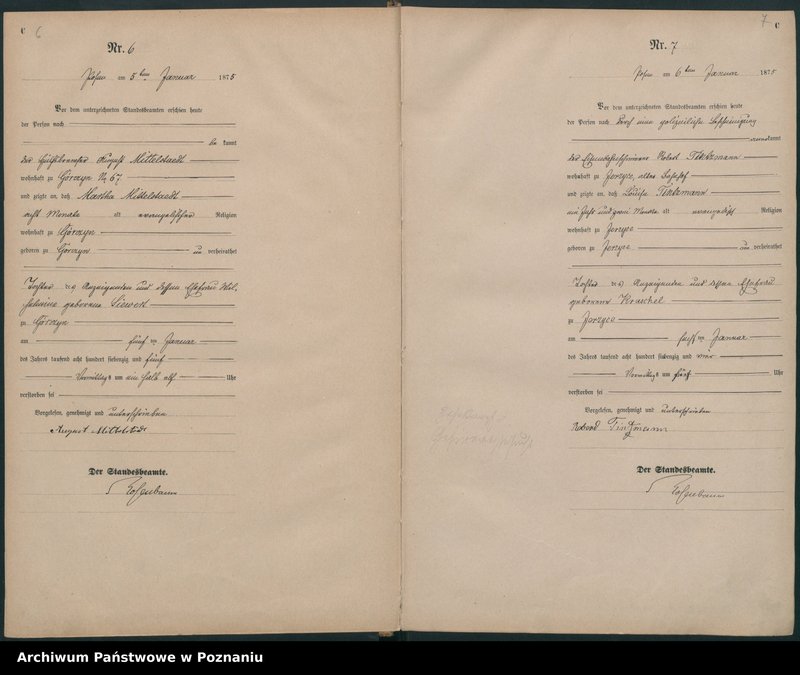 C 6
Nr. 6
Posen am 5ten Januar 1875
Vor dem unterzeichneten Standesbeamten erschien heute
der Person nach
be kannt
der August Mittelstaedt
wohnhaft zu Górczyn No 67
und zeigte an, daß Martha Mittelstaedt
acht Monate alt evangelischer Religion
wohnhaft zu Górczyn
geboren zu Górczyn un verheirathet
Tochter des Anzeigenden und dessen Ehefrau Wil-
helmine geborene Siewert
zu Górczyn
am fünften Januar
des Jahres tausend acht hundert siebenzig und fünf
Vormittags um ein halb elf Uhr
verstorben sei
Vorgelesen, genehmigt und unterschrieben
August Mittelstedt
Der Standesbeamte.
7 C
Nr. 7
Posen am 6ten Januar 1875
Vor dem unterzeichneten Standesbeamten erschien heute
der Person nach durch eine polizeiliche Bescheinigung
anerkannt
der Robert Tietzmann
wohnhaft zu Jerzyce, alter Bahnhof
und zeigte an, daß Louise Tietzmann
ein Jahr und zwei Monate alt evangelisch Religion
wohnhaft zu Jerzyce
geboren zu Jerzyce un verheirathet
Tochter des Anzeigenden und dessen Ehefrau
geborene Kraschel
zu Jerzyce
am Januar
des Jahres tausend acht hundert siebenzig und
Vormittags um fünf Uhr
verstorben sei
Vorgelesen, genehmigt und unterschrieben
Robert Tietzmann
Der Standesbeamte.
Archiwum Państwowe w Poznaniu